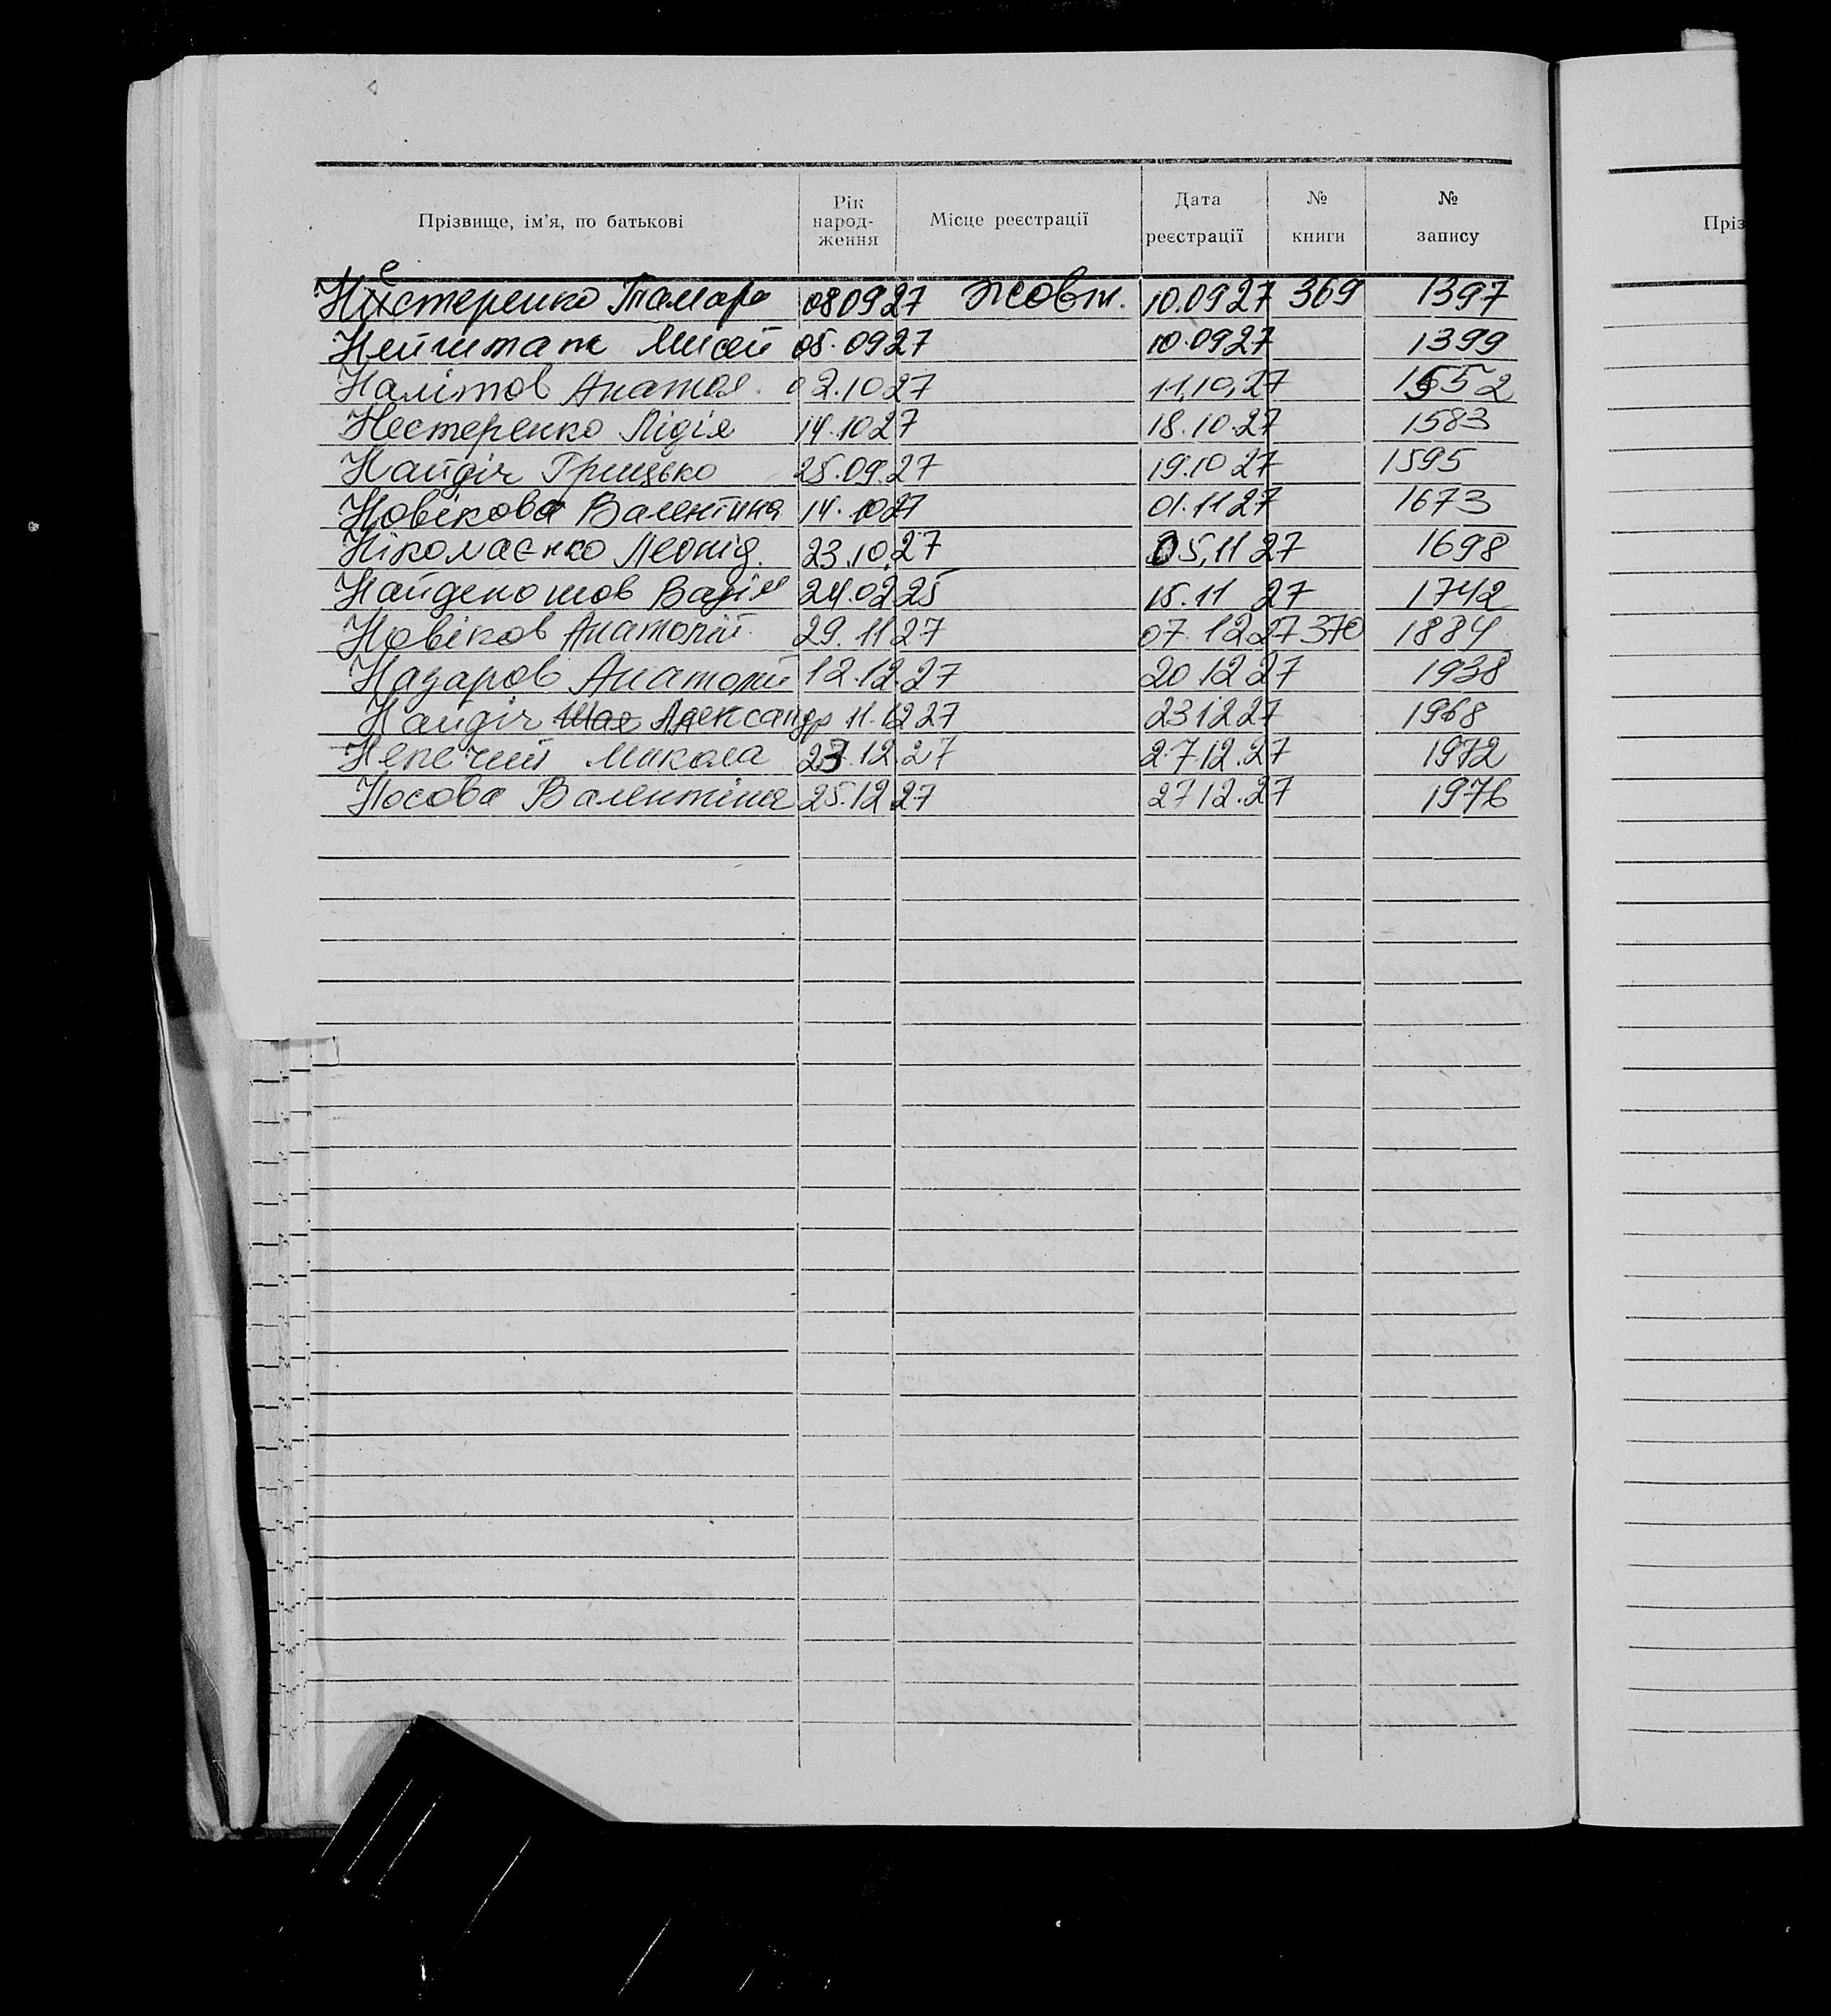 Прізвище, ім'я, по батькові Рік народ-ження Місце реєстрації Дата реєстрації № книги № запису
Пріз
Нестеренко Тамара 08 09 27 Жовт. 10.09 27 369 1397
Мисей 05.09 27 10.09 27 1399
Налітов Анатол. 02.10 27 11.10.27 1552
Нестеренко Лідія 14.10 27 18.10.27 1583
Найдіч Грицько 25.09.27 19.10 27 1595
Новікова Валентина 14.10 27 01.11 27 1673
Ніколаєнко Леонід. 23.10.27 05.11 27 1698
Вадім 24.02 25 15.11 27 1742
Новіков Анатолій. 29.11 27 07.12 27 370 1884
Назаров Анатолий 12.12.27 20 12 27 1938
Найдіч Шая Александр 11.12 27 23 12 27 1968
Микола 23.12.27 27 12.27 1972
Носова Валентіна 25.12 27 27 12.27 1976